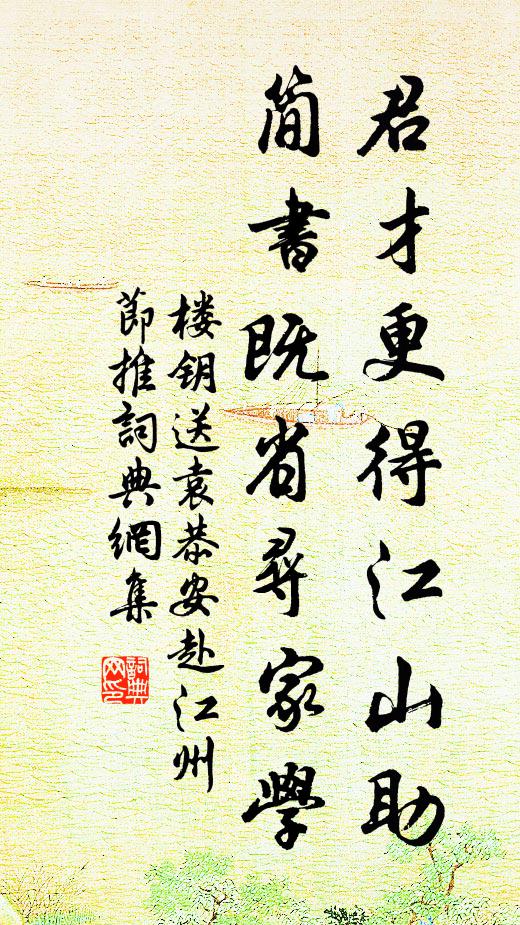 君才更得江山助
简書既省尋家學
楼钥送袁恭安赴江州
節推詞典網集
詞典网印